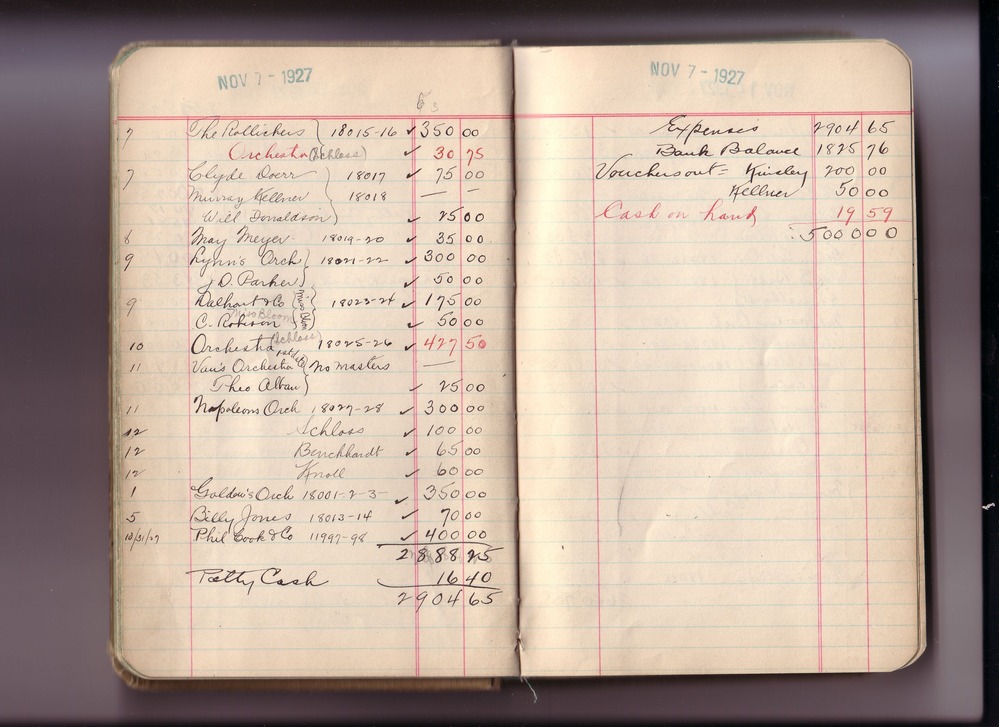 NOV 7 - 1927
7 The Rollickers } 18015-16 ✓ 350 00
Orchestra (Schloss) ✓ 30 75
7 Clyde Doerr } 18017 ✓ 75 00
Murray Kellner 18018 — —
Will Donaldson ✓ 25 00
8 May Meyer 18019-20 ✓ 35 00
9 Lynn's Orch } 18021-22 ✓ 300 00
J.D. Parker } ✓ 50 00
9 Dalhart & Co } Miss Bloom 18023-24 ✓ 175 00
Miss Bloom
C. Robison ✓ 50 00
10 Orchestra (Schloss) 18025-26 ✓ 427 50
11 Van's Orchestra { No masters —
Theo Alban } ✓ 25 00
11 Napoleons Orch 18027-28 ✓ 300 00
12 Schloss ✓ 100 00
12 Burckhardt ✓ 65 00
12 Knoll ✓ 60 00
1 Golden's Orch 18001-2-3- ✓ 350 00
5 Billy Jones 18013-14 ✓ 70 00
10/31/27 Phil Cook & Co 11997-98 ✓ 400 00
2888 25
Petty Cash 16 40
2904 65
NOV 7 - 1927
Expenses 2904 65
Bank Balance 1825 76
Vouchers out = Kinsley 200 00
Kellner 50 00
Cash on hand 19 59
5000 00